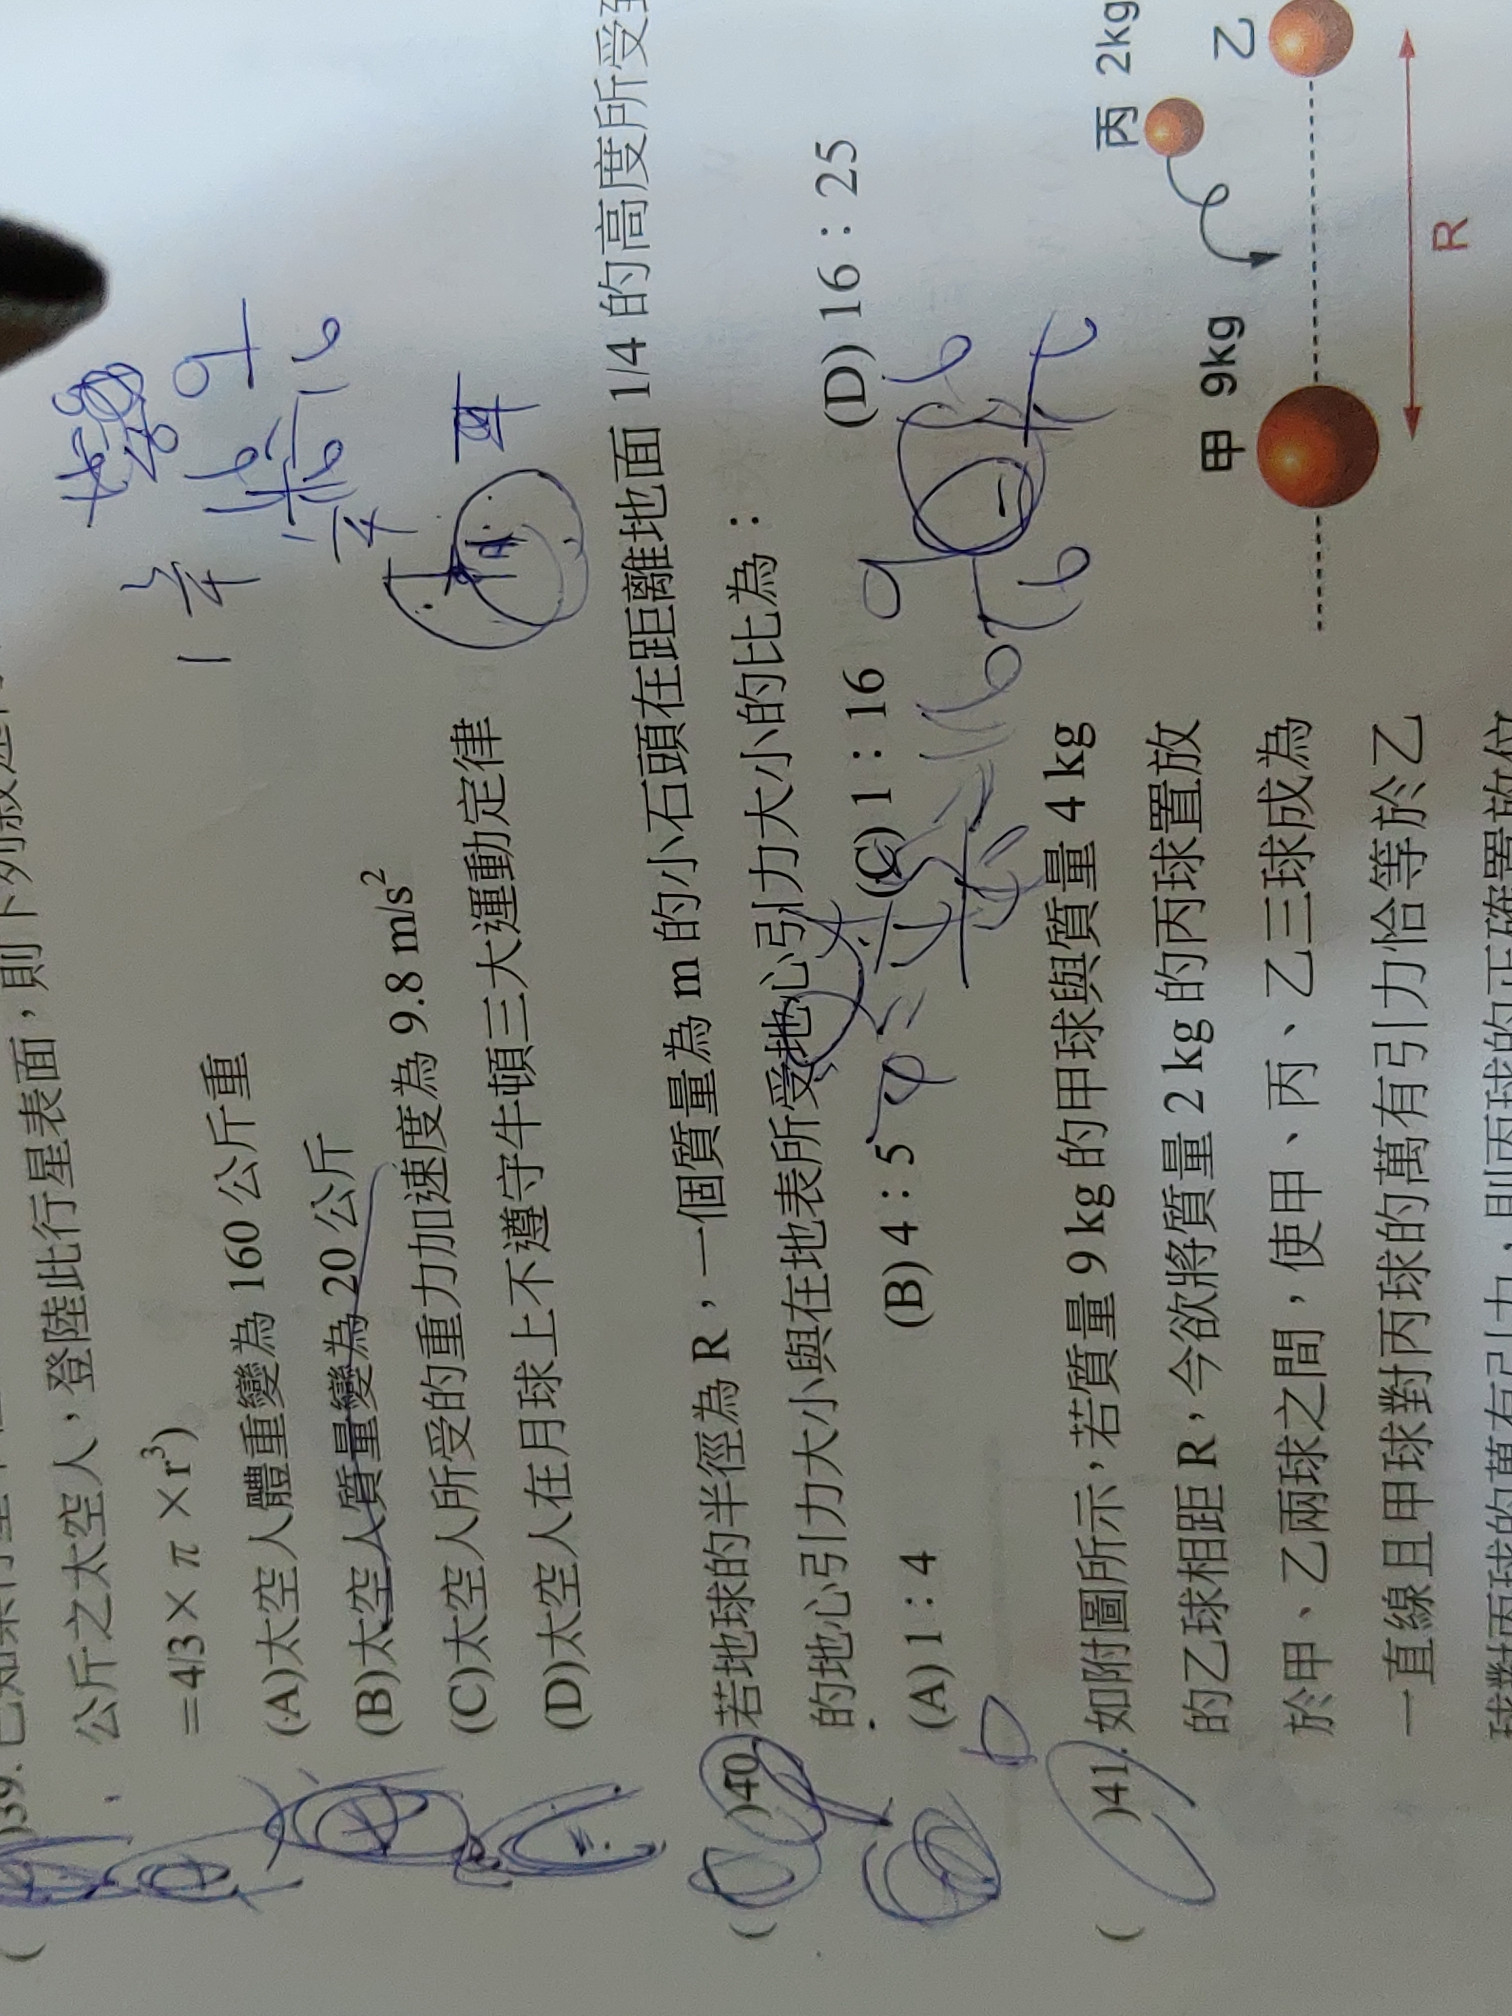 )39.
公斤之太空人，登陸此行星表面，則下列敘述
=4/3×π×r³)
(A)太空人體重變為 160 公斤重
(B)太空人質量變為 20 公斤
(C)太空人所受的重力加速度為 9.8 m/s²
(D)太空人在月球上不遵守牛頓三大運動定律
( )40.若地球的半徑為 R，一個質量為 m 的小石頭在距離地面 1/4 的高度所受到
的地心引力大小與在地表所受地心引力大小的比為：
(A) 1：4 (B) 4：5 (C) 1：16 (D) 16：25
( )41.如附圖所示，若質量 9 kg 的甲球與質量 4 kg
的乙球相距 R，今欲將質量 2 kg 的丙球置放
於甲、乙兩球之間，使甲、丙、乙三球成為
一直線且甲球對丙球的萬有引力恰等於乙
球對丙球的萬有引力，則丙球的正確置放位
甲 9kg
丙 2kg
乙
R